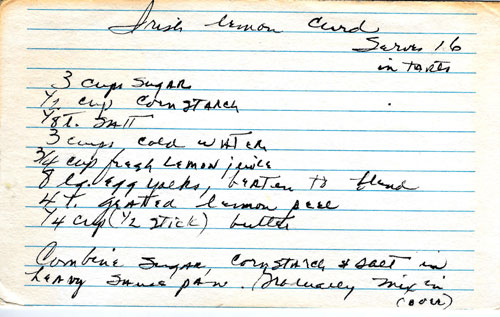 Irish Lemon Curd
Serves 16
in TARTS
3 cups Sugar
1/2 cup CornStarch
1/8 t. Salt
3 cups cold water
3/4 cup fresh Lemon juice
8 lg. egg yolks, beaten to blend
4 t. grated lemon peel
1/4 cup (1/2 stick) butter
Combine sugar, cornstarch & salt in
heavy sauce pan. Gradually mix in
(over)